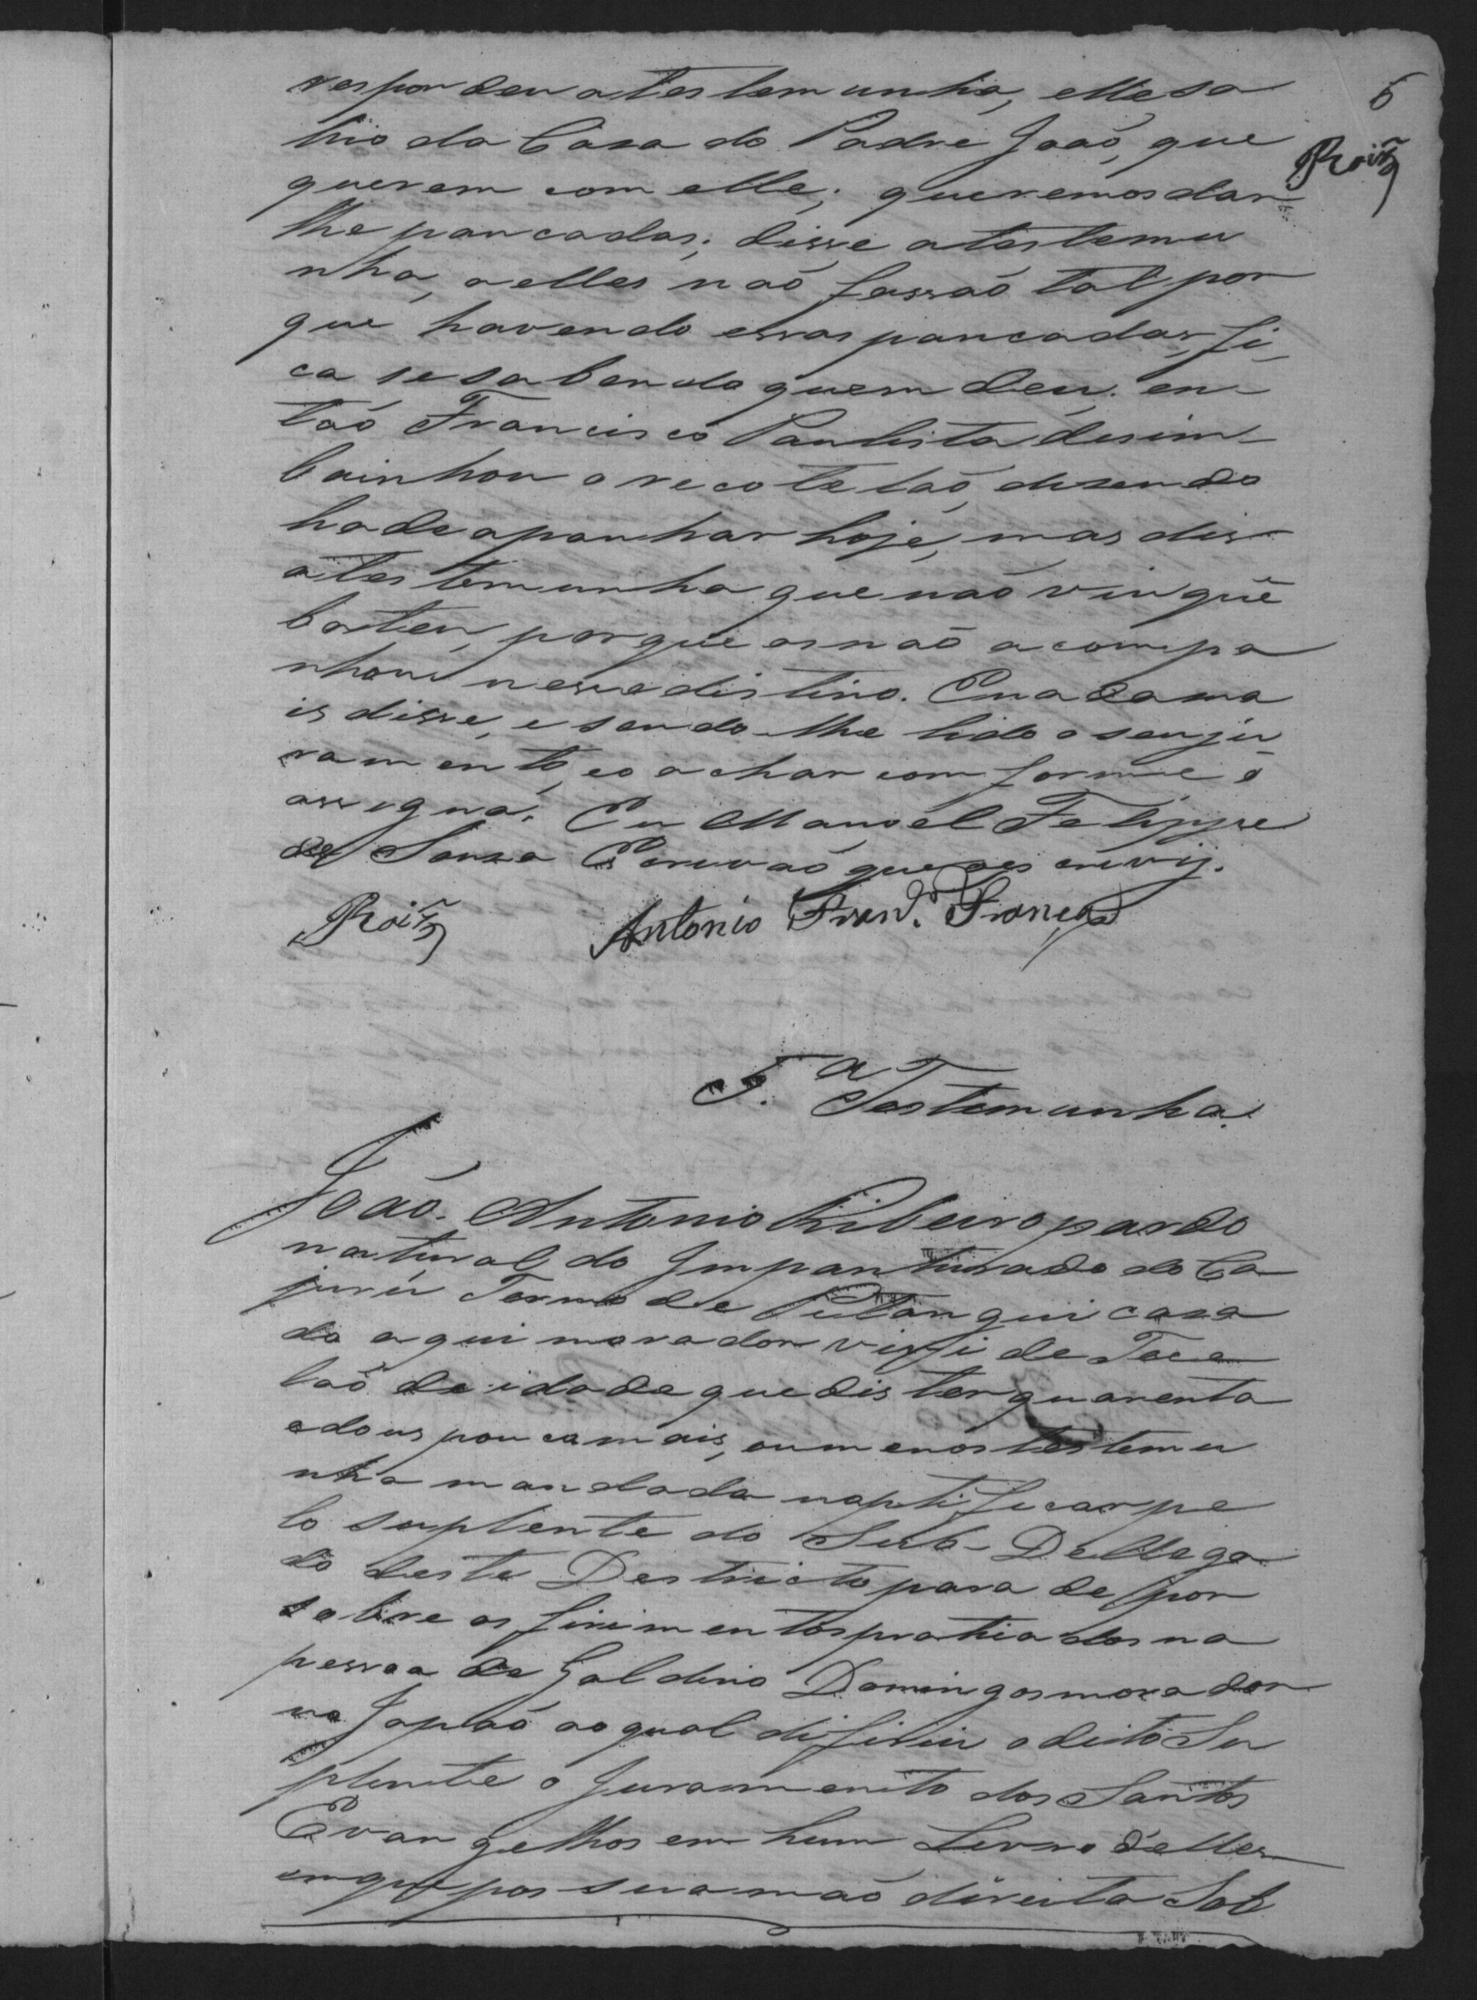 6
Roiz
respondeu a testemunha, elle sa
hio da Casa do Padre João, que
querem com elle; queremos dar
lhe pancadas; disse a testemu
nha, a elles não fassão tal por
que havendo essas pancadas, fi-
ca se sabendo quem deu. en-
tão Francisco Paulista desim-
bainhou o recotelão, disendo
ha de apanhar hoje, mas dis
a testemunha que não viu quê
bateu, porque os não acompa
nhou nesse distino. E nada ma
is disse, e sendo-lhe lido o seu ju
ramento, e o achar comforme o
assigna. Eu Manoel Felippe
de Souza Escrivão que escrevy.
Roiz Antonio Fran.co França
5.a Testemunha
João Antonio Ribeiro pardo
natural do Impanturado do Ca
jurú Termo de Pitangui casa
do aqui morador vive de
de idade que dis ter quarenta
e dous poucamais, ou menos testemu
nha mandada noptificar pe
lo suplente do Sub-Dellega
do deste Destricto para depor
sobre os firimentos pratiados na
pessoa de Galdino Domingos morador
no Japão ao qual difiriu o dito Su
plente o Juramento dos Santos
Evangelhos em hum Livro delles
em que pos sua mão direita Sob